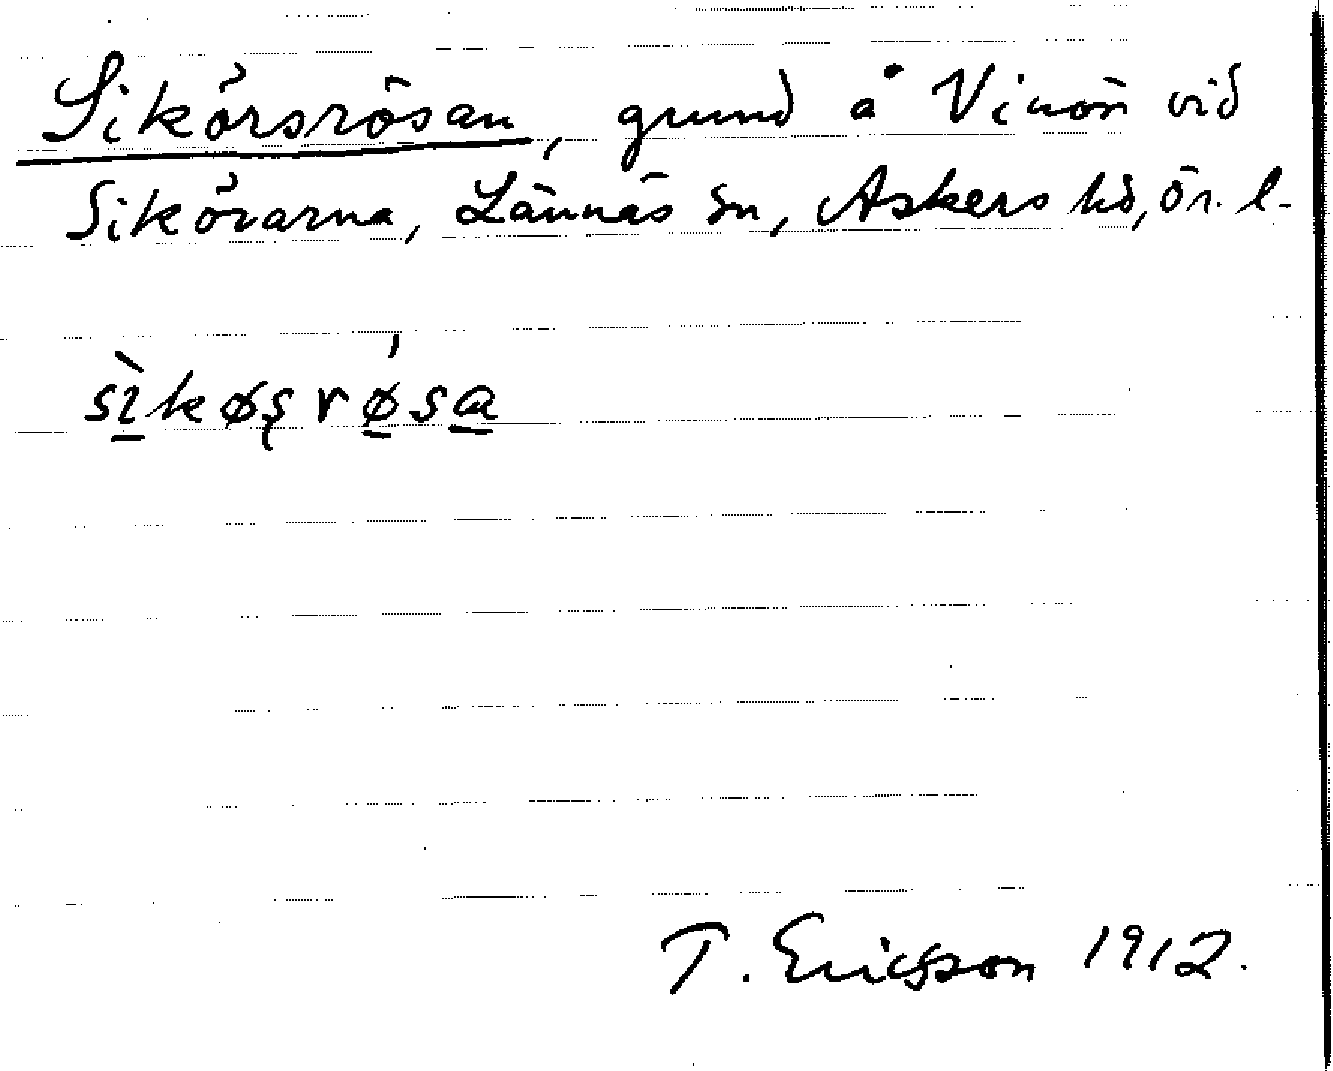 Sikörsrösan, grund å Vinön vid
Sikörarna, Lännäs sn, Askers hd, Ör. l.
sìkøşrø´sa
T. Ericsson 1912.